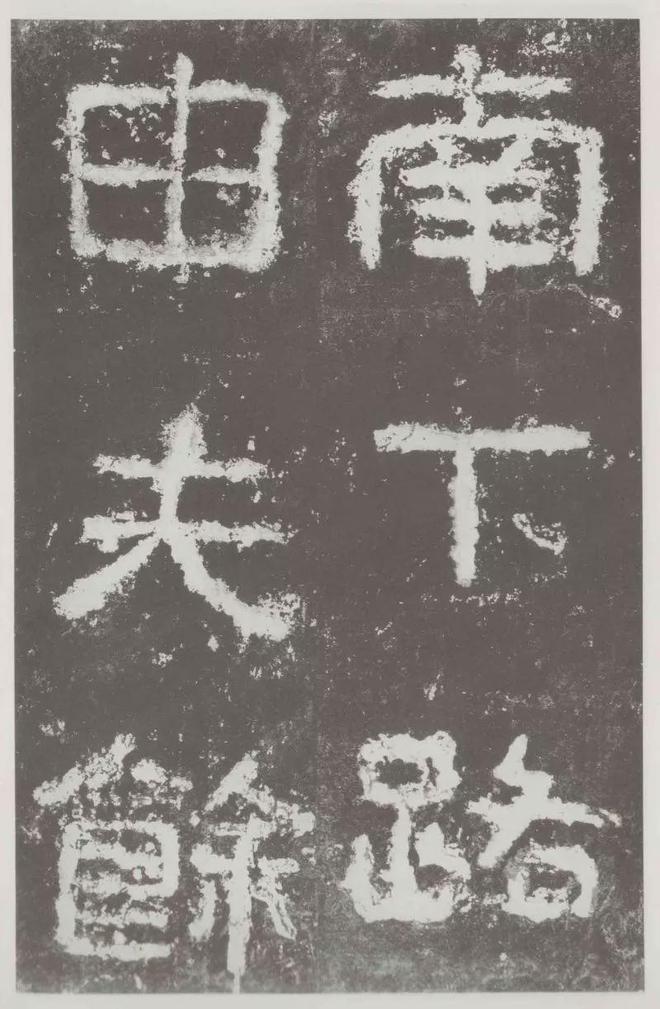 南下路
由夫餘